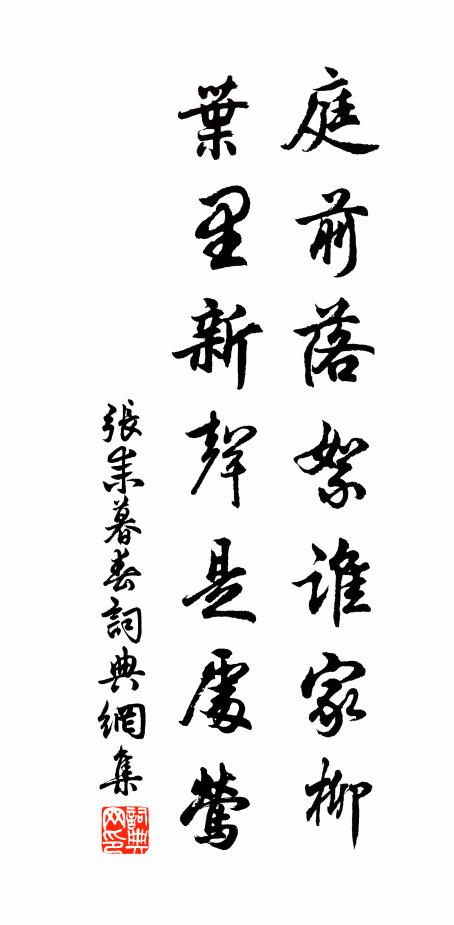 庭前落絮誰家柳
葉里新聲是處鶯
張耒暮春詞典網集
詞典網印